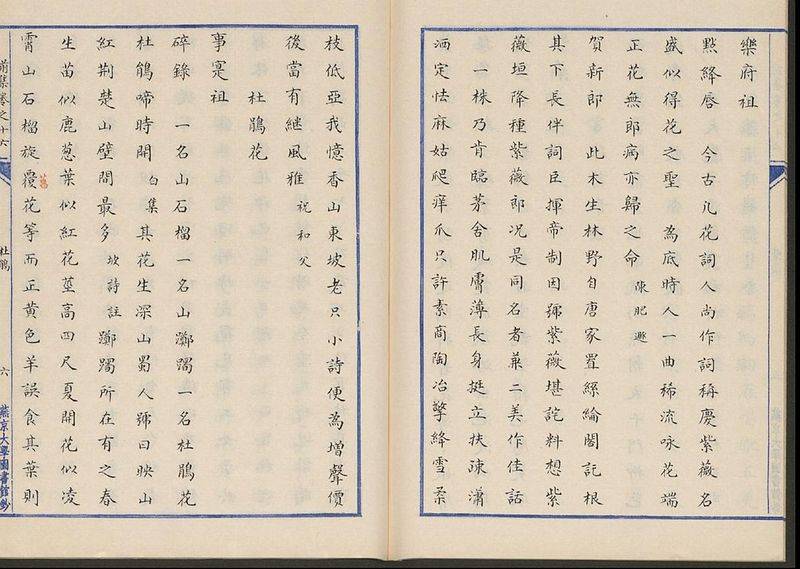 樂府祖
點絳唇 今古凡花詞人尚作詞稱慶紫薇名
盛似得花之聖 為底時人一曲稀流咏花端
正花無郎病亦歸之命 陳肥遯
賀新郎 此木生林野自唐家置絲綸閣託根
其下長伴詞臣揮帝制因號紫薇堪詫料想紫
薇垣降種紫薇郎況是同名者兼二美作佳話
一株乃肯臨茅舍肌膚薄長身挺立扶疎瀟
洒定怯麻姑爬痒爪只許素商陶冶擎絳雪柔
枝低亞我憶香山東坡老只小詩便為增聲價
後當有繼風雅 祝和父
杜鵑花
事寔祖
碎錄 一名山石榴一名山躑躅一名杜鵑花
杜鵑啼時開 白集 其花生深山蜀人號曰映山
紅荆楚山壁間最多 坡詩註 躑躅所在有之春
生苗似鹿葱葉似紅花莖高四尺夏開花似凌
霄山石榴旋覆花等而正黄色羊誤食其葉則
前集卷之十六
杜鵑
六
燕京大學圖書館鈔